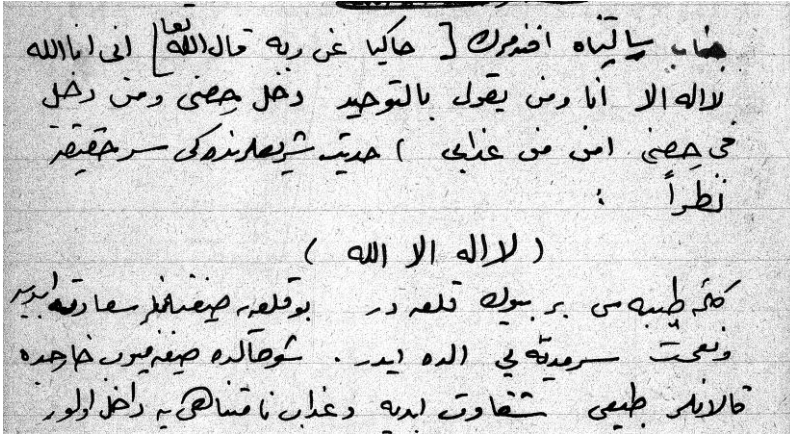 جناب رسالتپناه افندمزك [ حاكيا عن ربه قال الله تعا ] انى انا الله
لا اله الا انا ومن يقول بالتوحيد دخل حِصنى ومن دخل
فى حِصنى امن من عذابى ) حديث شريفلرنده كى سر حقيقته
نظراً :
( لا اله الا الله )
كلمۀ طيبه سى بر بيوك قلعه در بو قلعه يه صيغنانلر سعادت ابديه
ونعمت سرمديه يى الده ايدر . شو حالده صيغنميوب خارجده
قالانلر طبيعى شقاوت ابديه و عذاب نا متناهى يه داخل اولور